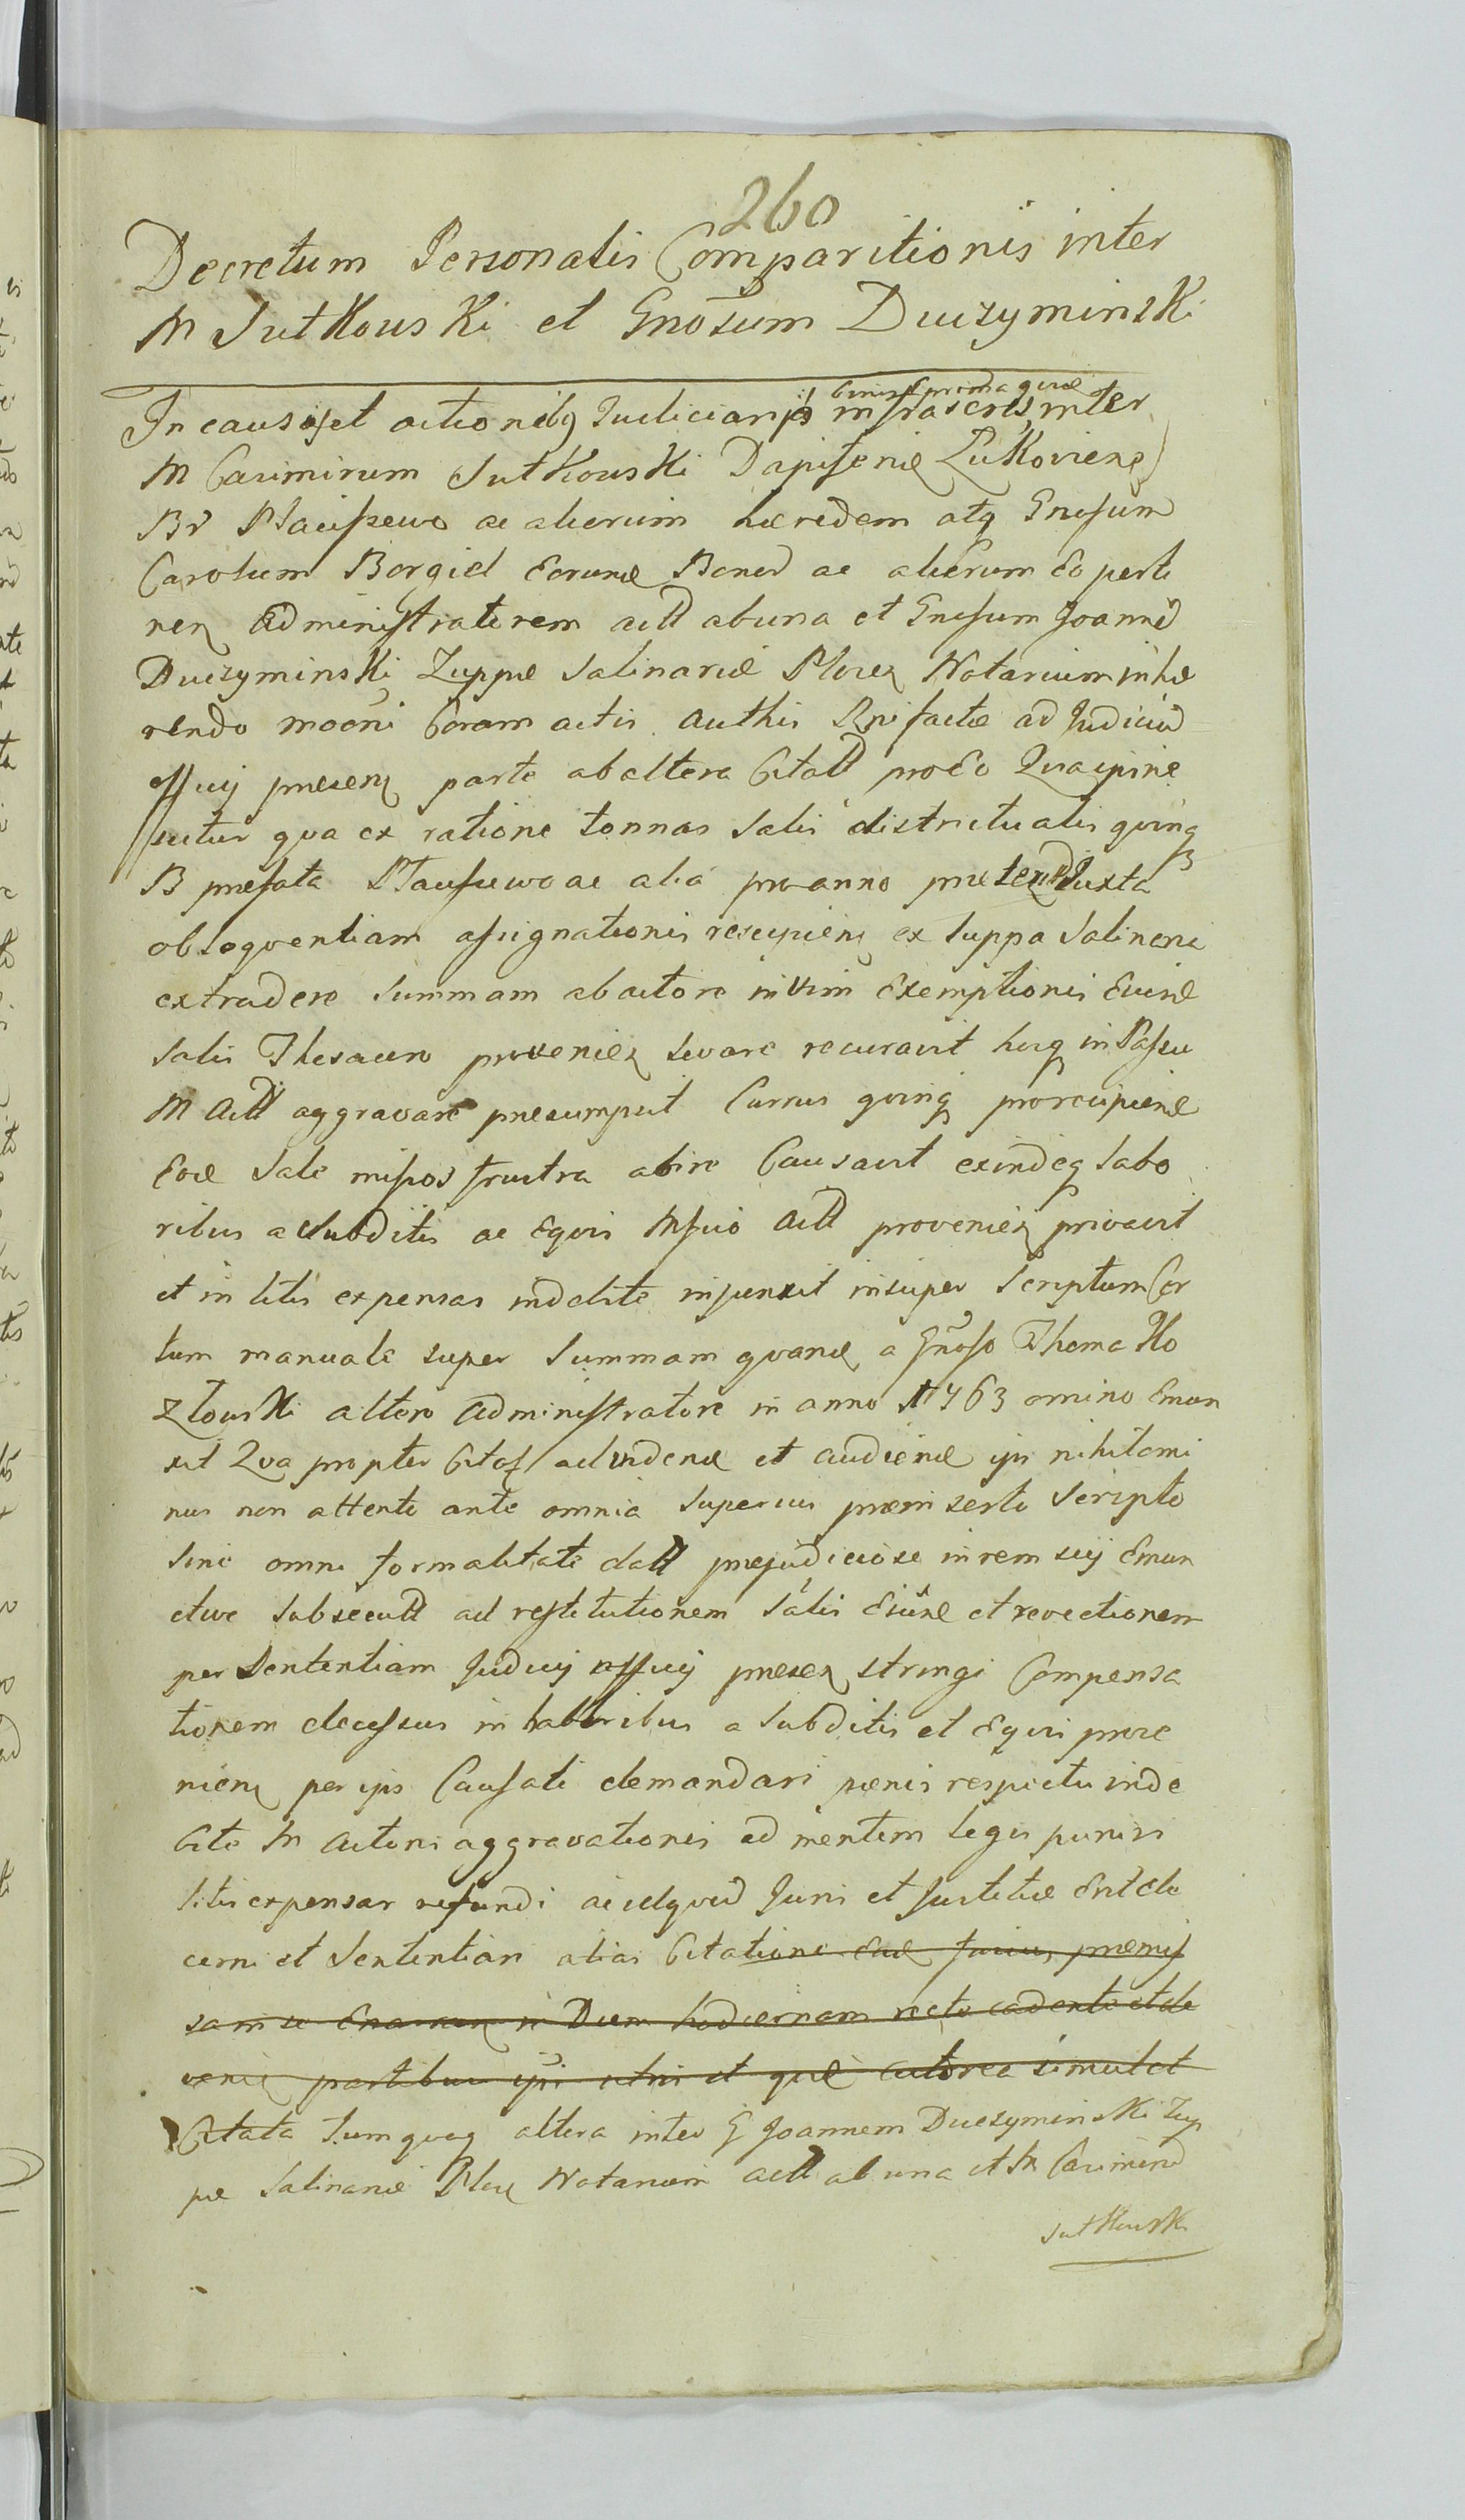 260
Decretum Personalis Comparitionis inter
M Sutkowski et Gnosum Duczyminski
binis prima quid
In causis et actionibq Judiciarijs infrascrtis inter
M Casimirum Sutkowski Dapiferid Łukoviens
Br ac aliorum hæredem atq Gnosum
Carolum Borgiel Eorund Bonor ac aliorum Eo perti
nen Administratorem act ab una et Gnosum Joannē
Duczyminski Zuppæ Salinariæ Plocen Notarium inhæ
rendo mocni Coram actis authis Pni factæ ad Judiciū
offij presens parte ab altera Citatt pro Eo Quia ipine
scitur qua ex ratione tonnas Salis districtualis quinq
B prefata ac alia pro anno pretend Juxta
obloquentiam assignationis recipiens ex Suppa Salinaria
extradere Summam ab actore in vim Exemptionis Eiusd
Salis Thesauro provenien levare recusavit hucq in Passu
M Act aggravare presumpsit Currus quinq pro recipiend
Eod Sale missos frustra abire Causavit exindeq labo
ribus a Subditis ac Equis Act provenien privavit
et in litis expensas indebite injunxit insuper Scriptum Cer
tum manuale super Summam quand a Gnoso Thoma Ko
złowski altero administratore in anno 1763 omnino Emun
xit Qua propter Citat ad vidend et audiend ips nihilomi
nus non attento ante omnia Superius præinserto Scripto
Sine omni formalitate datt prejudiciose in rem sui Emun
ctive Subsecutt ad restitutionem Salis Eiusd et revectionem
per Sententiam Judicij offij presen stringi Compensa
tionem decessus in laboribus a Subditis et Equis prove
niens per ips Causati demandari pænis respectu inde
bite M Actoris aggravationis ad mentem legis puniri
litis expensas refundi ac idquid Juris et Justitiæ Erit de
cerni et Sententiari alias Citatione Ead premis
in Diem hodiernam recte cadente et de
partibus ips actris et quæ actorea simul et
Citata tum quoq altera inter G Joannem Duczyminski Zup
pæ Salinariæ Ploce Notarium act ab una et M Casimirū
Sutkowski